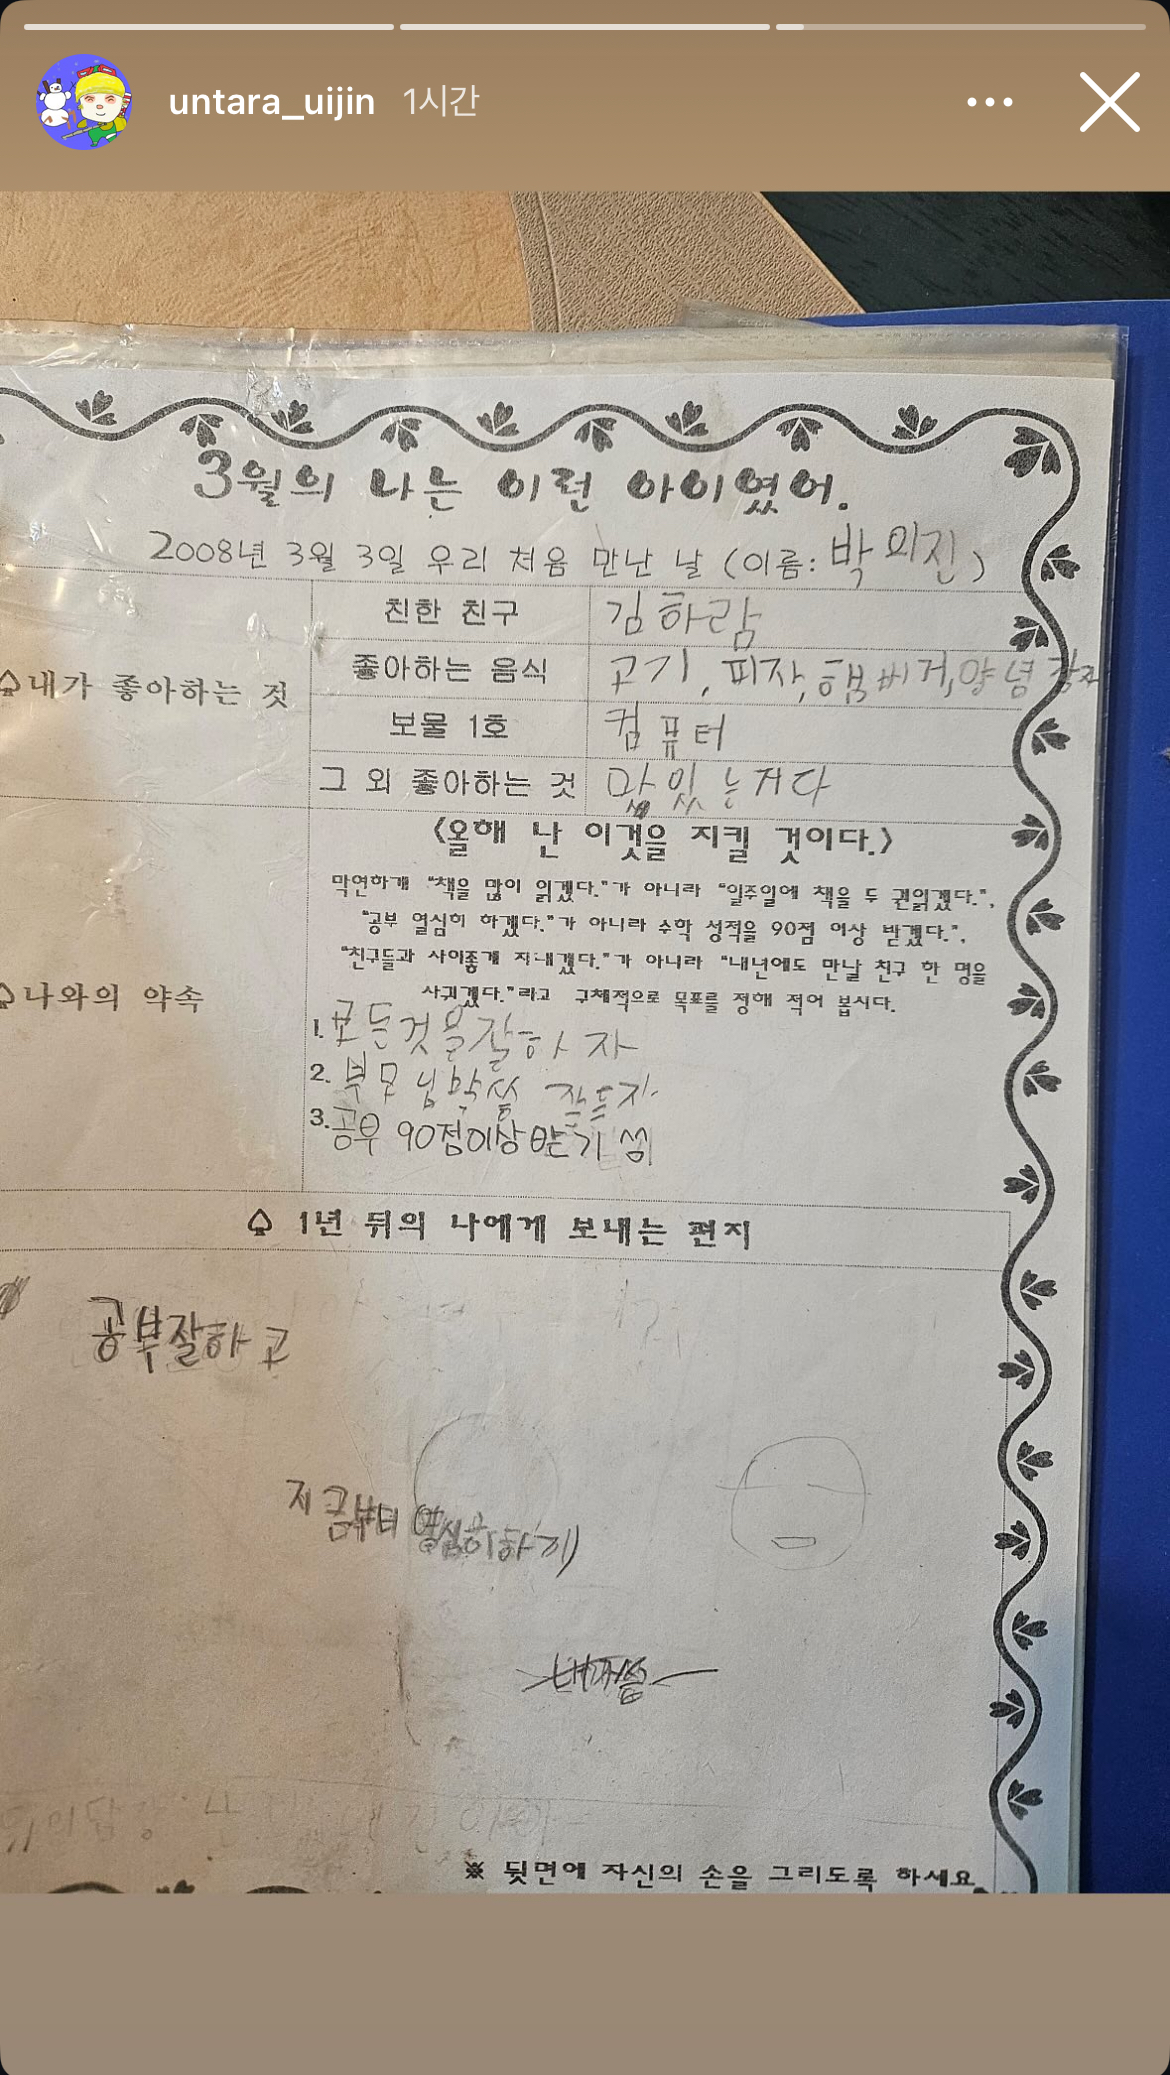 untara_uijin 1시간
3월의 나는 이런 아이였어.
2008년 3월 3일 우리 처음 만난 날 (이름: 박의진)
친한 친구 김하람
♤내가 좋아하는 것
좋아하는 음식 고기, 피자, 햄버거, 양념
보물 1호 컴퓨터
그 외 좋아하는 것 맛있는거다
<올해 난 이것을 지킬 것이다.>
막연하개 "책을 많이 읽겠다."가 아니라 "일주일에 책을 두 권읽겠다.",
"공부 열심히 하겠다."가 아니라 수학 성적을 90점 이상 받겠다.",
"친구들과 사이좋게 지내겠다."가 아니라 "내년에도 만날 친구 한 명을
사귀겠다."라고 구체적으로 목표를 정해 적어 봅시다.
♤나와의 약속
1. 모든것을잘하자
2. 부모님말씀 잘듣자.
3. 공부 90점이상받기
♤ 1년 뒤의 나에게 보내는 편지
공부잘하고
지금부터 열심히하기
※ 뒷면에 자신의 손을 그리도록 하세요.